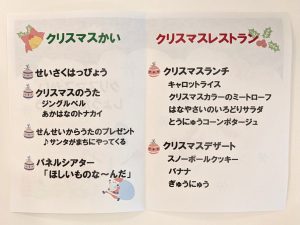 クリスマスかい
せいさくはっぴょう
クリスマスのうた
ジングルベル
あかはなのトナカイ
せんせいからうたのプレゼント
♪サンタがまちにやってくる
パネルシアター
「ほしいものな~んだ」
クリスマスレストラン
クリスマスランチ
キャロットライス
クリスマスカラーのミートローフ
はなやさいのいろどりサラダ
とうにゅうコーンポタージュ
クリスマスデザート
スノーボールクッキー
バナナ
ぎゅうにゅう